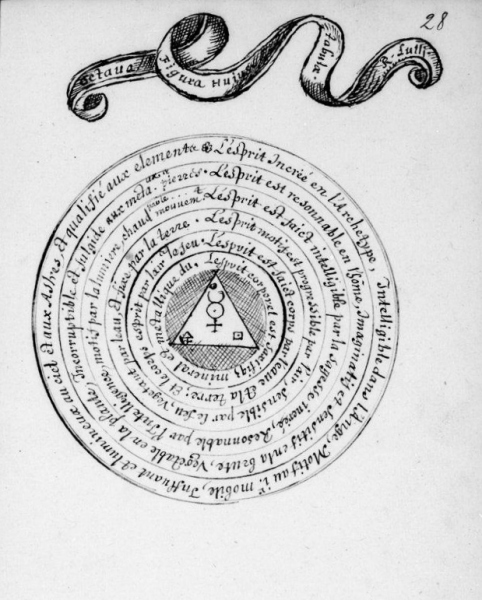 28
Octaua Figura Huius Tabulæ R. Lullij
L'esprit Increé en l'Archetype, Intelligible dans l'Ange, Motif au 1.er mobile, Influant et lumineux au ciel et aux Astres et qualifié aux elements
L'esprit est resonnable en l'hôme, Imaginatif et sensitif en la brute, Vegetable en la plante, Incorruptible et
L'esprit est faict intelligible par la sagesse increée, Resonnable par l'Intelligence, motif par la lumiere, chaud
L'esprit motif et progressible par l'air, sensible par le feu, Vegetant par l'eau, et fixe par la terre
L'esprit est faict corps par l'eaue et la terre, et le corps esprit par l'air et le feu
L'esprit corporel est mineral et metallique